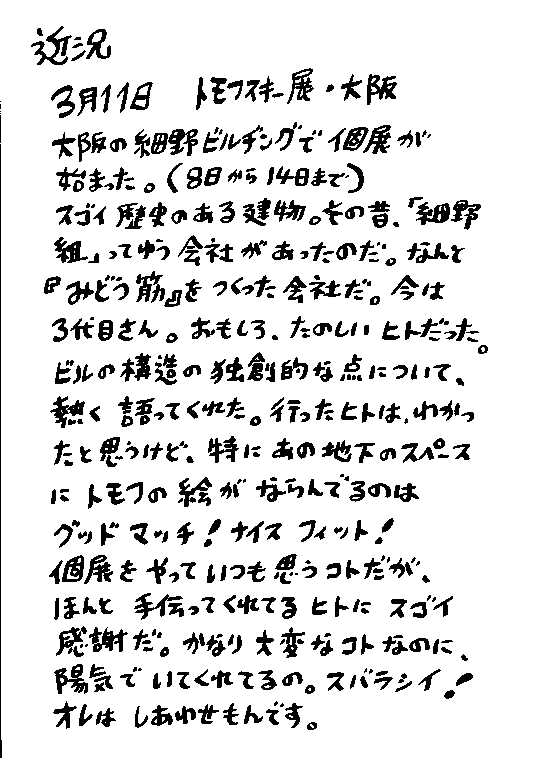 近況
3月11日 トモフスキー展・大阪
大阪の細野ビルヂングで個展が
始まった。(8日から14日まで)
スゴイ歴史のある建物。その昔、「細野
組」ってゆう会社があったのだ。なんと
『みどう筋』をつくった会社だ。今は
3代目さん。おもしろ、たのしいヒトだった。
ビルの構造の独創的な点について、
熱く語ってくれた。行ったヒトは、わかっ
たと思うけど、特にあの地下のスペース
にトモフの絵がならんでるのは
グッドマッチ!ナイスフィット!
個展をやっていつも思うコトだが、
ほんと手伝ってくれてるヒトにスゴイ
感謝だ。かなり大変なコトなのに、
陽気でいてくれてるの。スバラシイ!
オレはしあわせもんです。